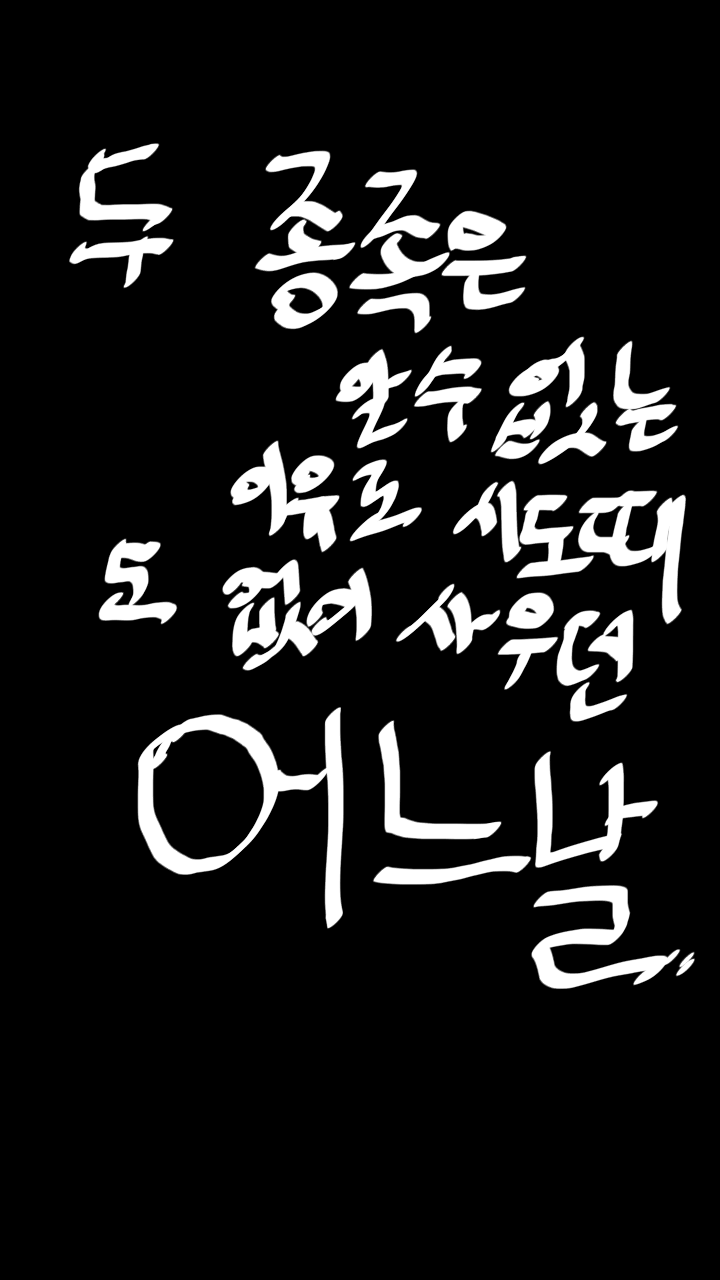 두 종족은
알수없는
이유로 시도때
도 없이 싸우던
어느날..